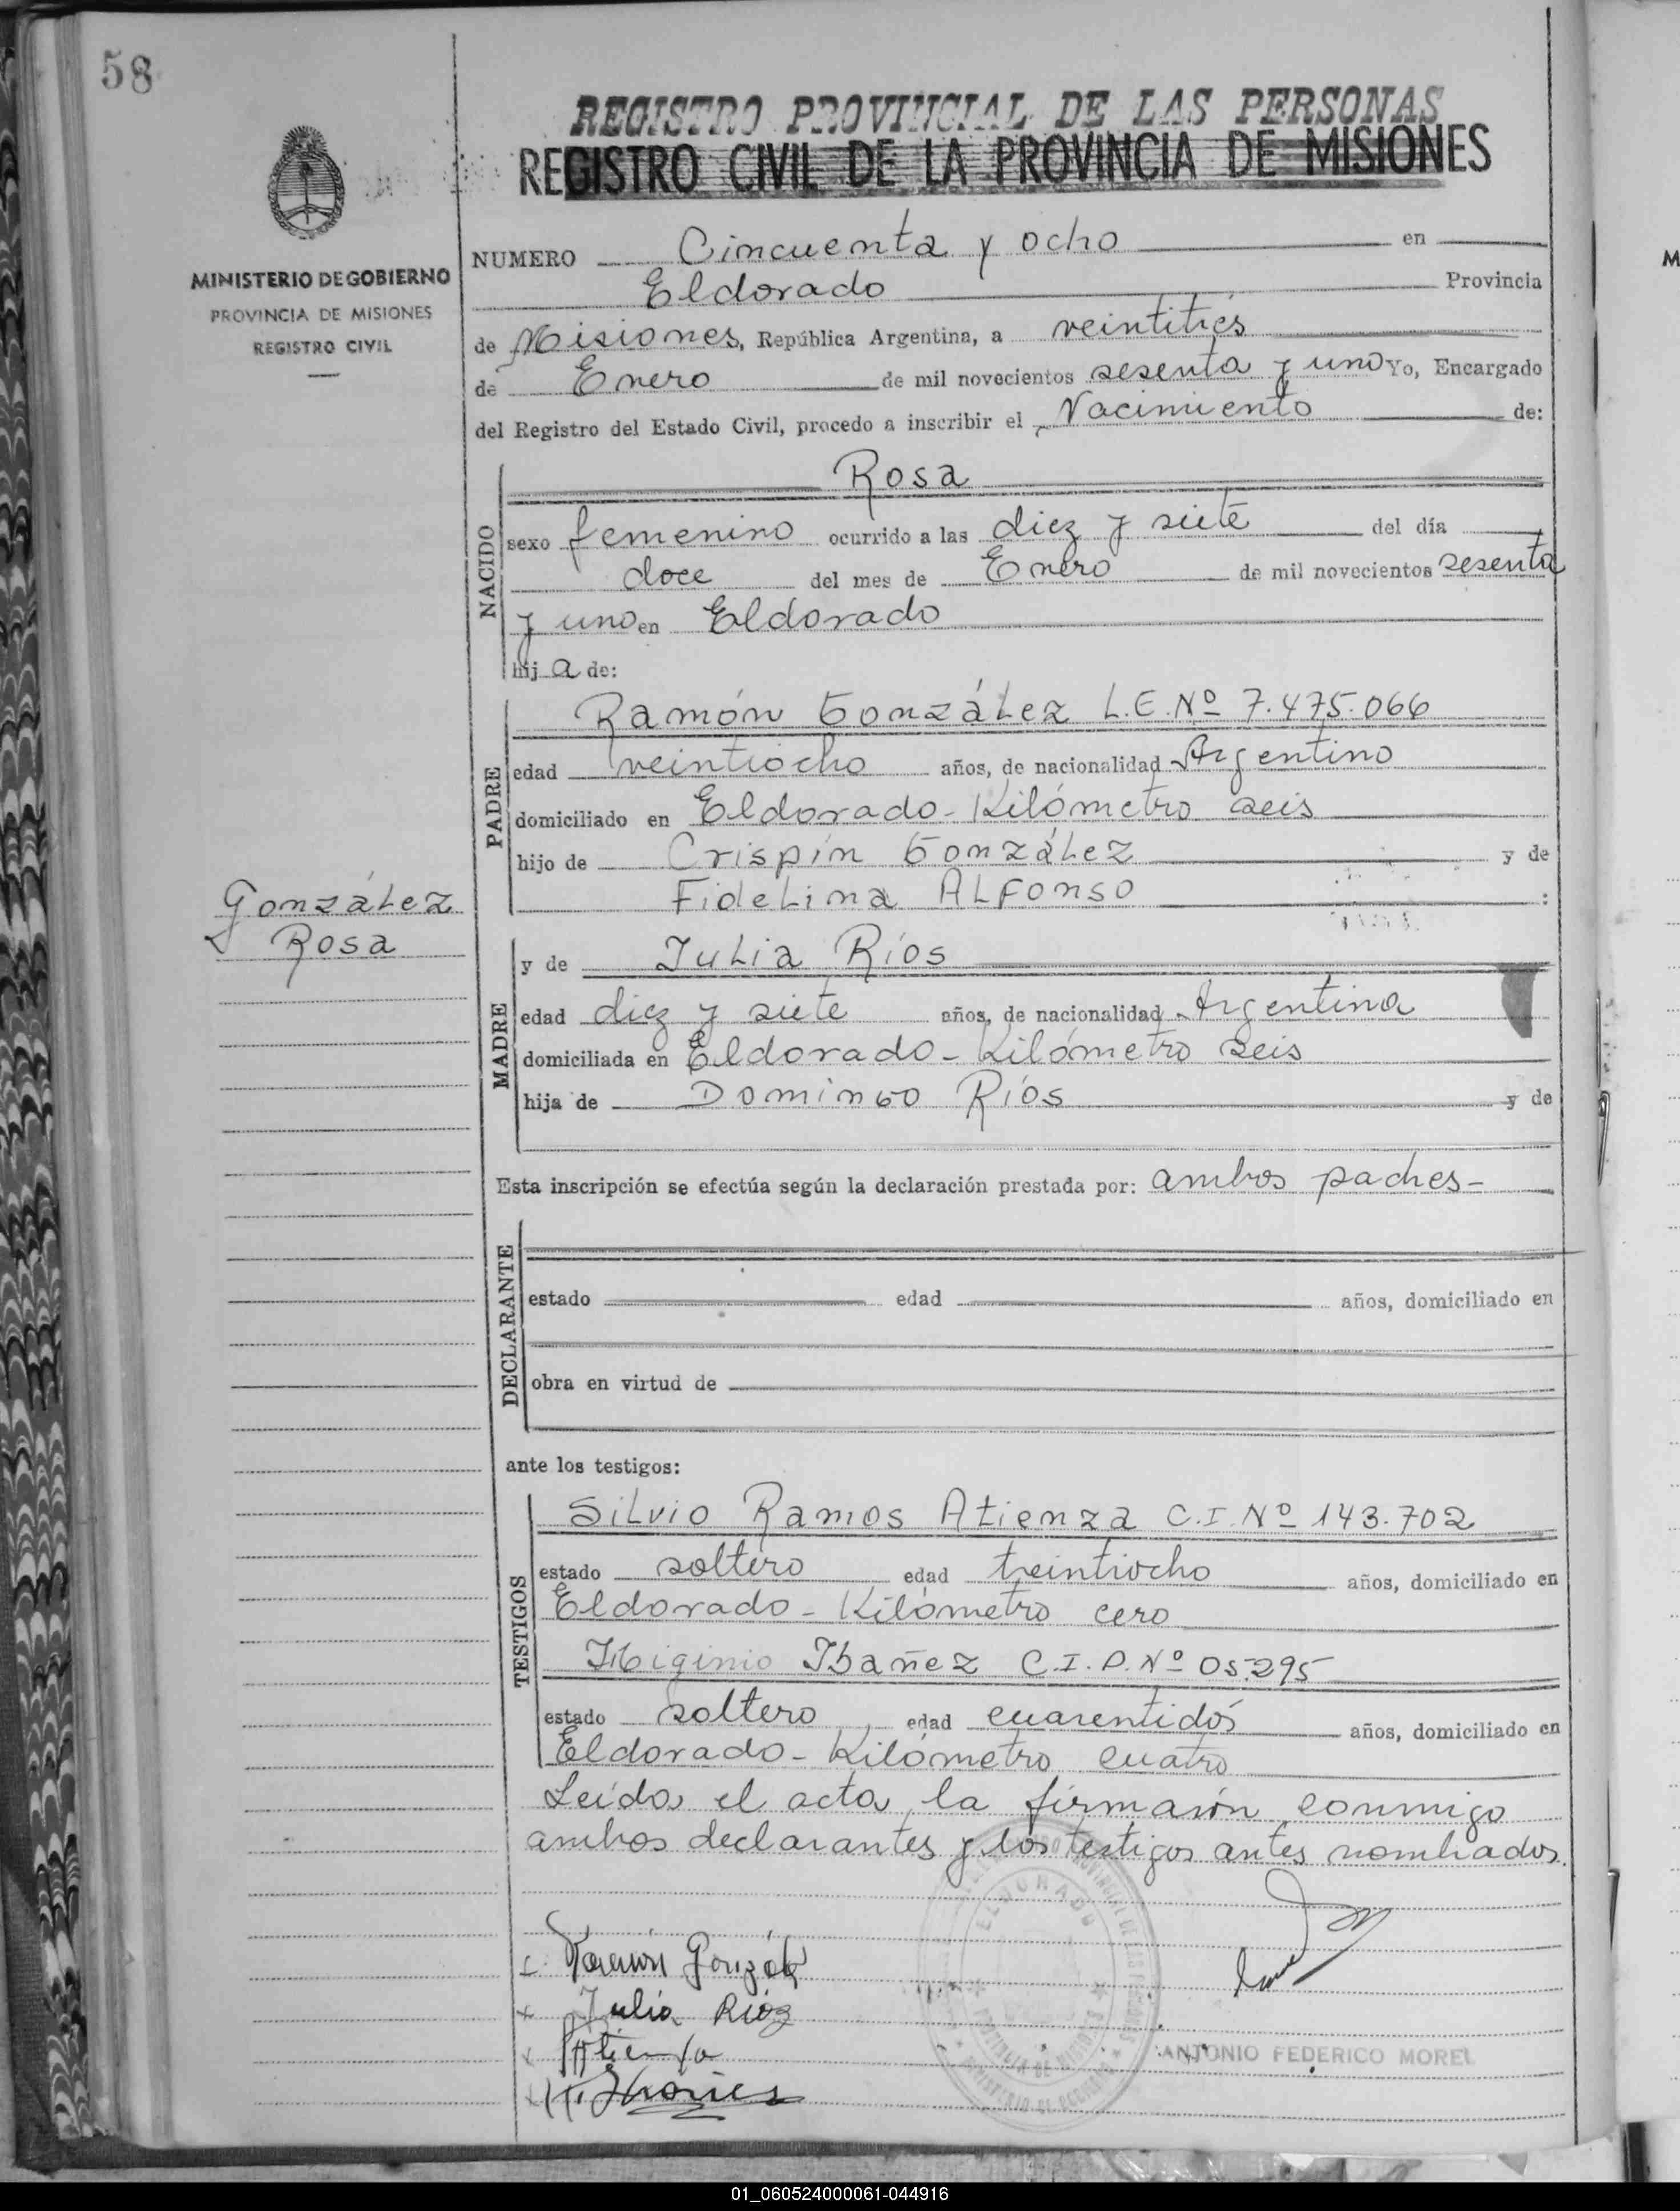 58
REGISTRO PROVINCIAL DE LAS PERSONAS
REGISTRO CIVIL DE LA PROVINCIA DE MISIONES
MINISTERIO DE GOBIERNO
PROVINCIA DE MISIONES
REGISTRO CIVIL
NUMERO Cincuenta y ocho en
Eldorado Provincia
de Misiones, República Argentina, a veintitrés
de Enero de mil novecientos sesenta y uno Yo, Encargado
del Registro del Estado Civil, procedo a inscribir el Nacimiento de:
NACIDO
Rosa
sexo femenino ocurrido a las diez y siete del día
doce del mes de Enero de mil novecientos sesenta
y uno en Eldorado
hij a de:
PADRE
Ramón González L.E. Nº 7.475.066
edad veintiocho años, de nacionalidad Argentino
domiciliado en Eldorado - Kilómetro seis
hijo de Crispín González y de
Fidelina ALFonso :
González
Rosa
MADRE
y de Julia Ríos
edad diez y siete años, de nacionalidad Argentina
domiciliada en Eldorado - Kilómetro seis
hija de Domingo Ríos y de
Esta inscripción se efectúa según la declaración prestada por: ambos padres -
DECLARANTE
estado edad años, domiciliado en
obra en virtud de
ante los testigos:
TESTIGOS
Silvio Ramos Atienza C.I. Nº 143.702
estado soltero edad treintiocho años, domiciliado en
Eldorado - Kilómetro cero
Higinio Ibañez C.I.P. Nº 05.295
estado soltero edad cuarentidós años, domiciliado en
Eldorado - Kilómetro cuatro
Leída el acta, la firmarón conmigo
ambos declarantes y los testigos antes nombrados.
Ramón González
Julia Rióz
Atienza
ELDORADO
ANTONIO FEDERICO MOREL
01_060524000061-044916